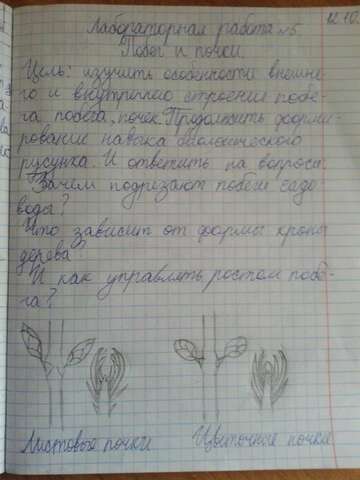 12.10.
Лабораторная работа №5
Побег и почки.
Цель: изучить особенности внешне-
го и внутреннго строения побе-
га побега, почек. Продолжить форми-
рование навыка биологического
русунка. И ответить на вопросы
Зачем подрезают побеги садо-
воды?
Что зависит от формы кроны
дерева?
И как управлять ростом побе-
га?
Листовые почки Цветочные почки